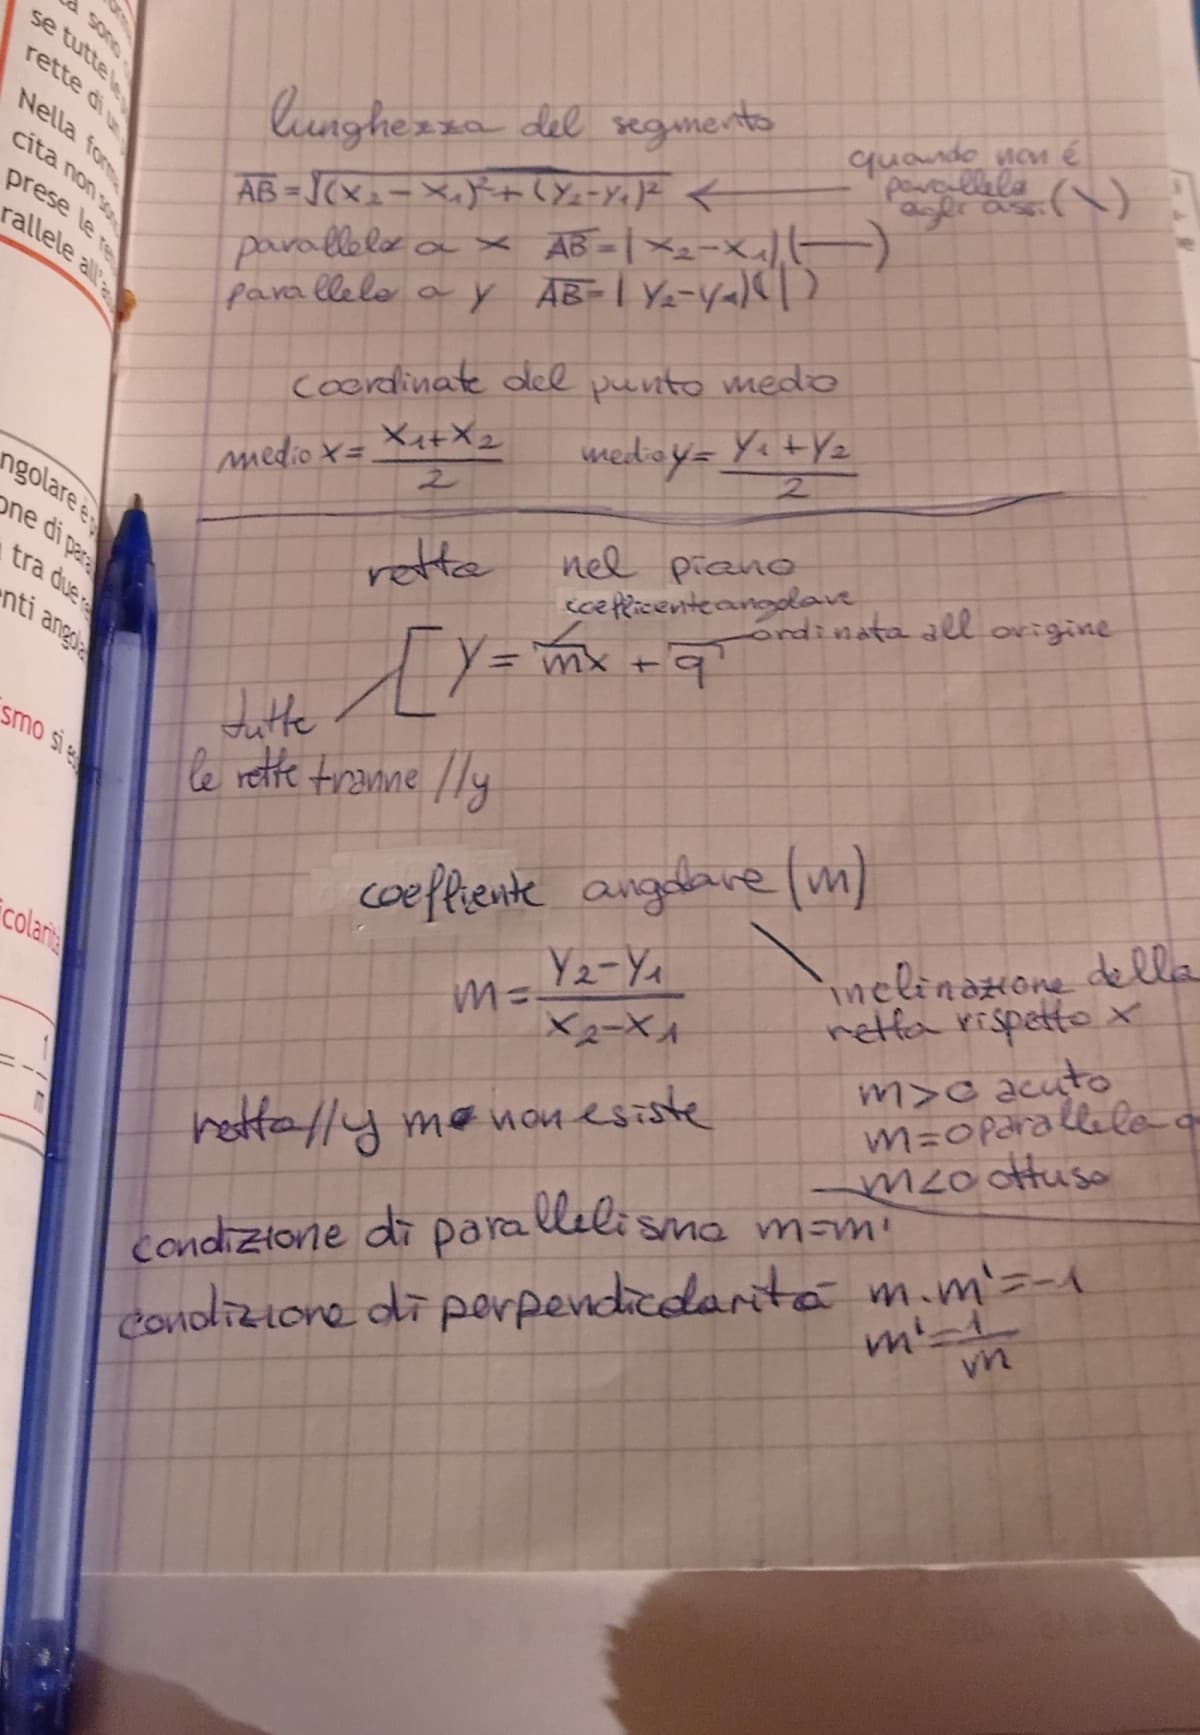 sono
se tutte le
rette di un
Nella forma
cita non sono
prese le
rallele all'
ngolare è
one di para
tra due
nti angola
smo si
icolarità
= - 1/m
lunghezza del segmento
quando non é
parallelo
agli assi (\)
AB = √(x₂ - x₁)² + (y₂ - y₁)² ←
parallelo a x AB = | x₂ - x₁) (—)
parallelo a y AB = | y₂ - y₁) (|)
coordinate del punto medio
medio x = x₁ + x₂ / 2 medio y = y₁ + y₂ / 2
retta nel piano
coefficente angolare
ordinata all origine
[ y = mx + q
tutte
le rette tranne //y
coeffiente angolare (m)
m = y₂ - y₁ / x₂ - x₁
inclinazione della
retta rispetto x
m>0 acuto
retta//y m non esiste
m=0 parallela a
m<0 ottuso
condizione di parallelismo m=m'
condizione di perpendicolarità m.m'=-1
m'=1/m